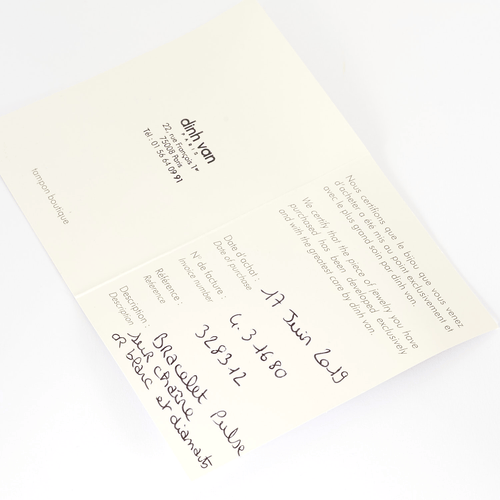 dinh van
PARIS
22, rue François 1er
75008 Paris
Tél : 01 56 64 09 91
tampon boutique
Nous certifions que le bijou que vous venez
d'acheter a été mis au point exclusivement et
avec le plus grand soin par dinh van.
We certify that the piece of jewelry you have
purchased has been developed exclusively
and with the greatest care by dinh van.
Date d'achat : 17 Juin 2019
Date of purchase
N° de facture : G.3.1680
Invoice number
Référence : 328312
Reference
Description : Bracelet Pulse
Description sur chaîne
or blanc et diamants